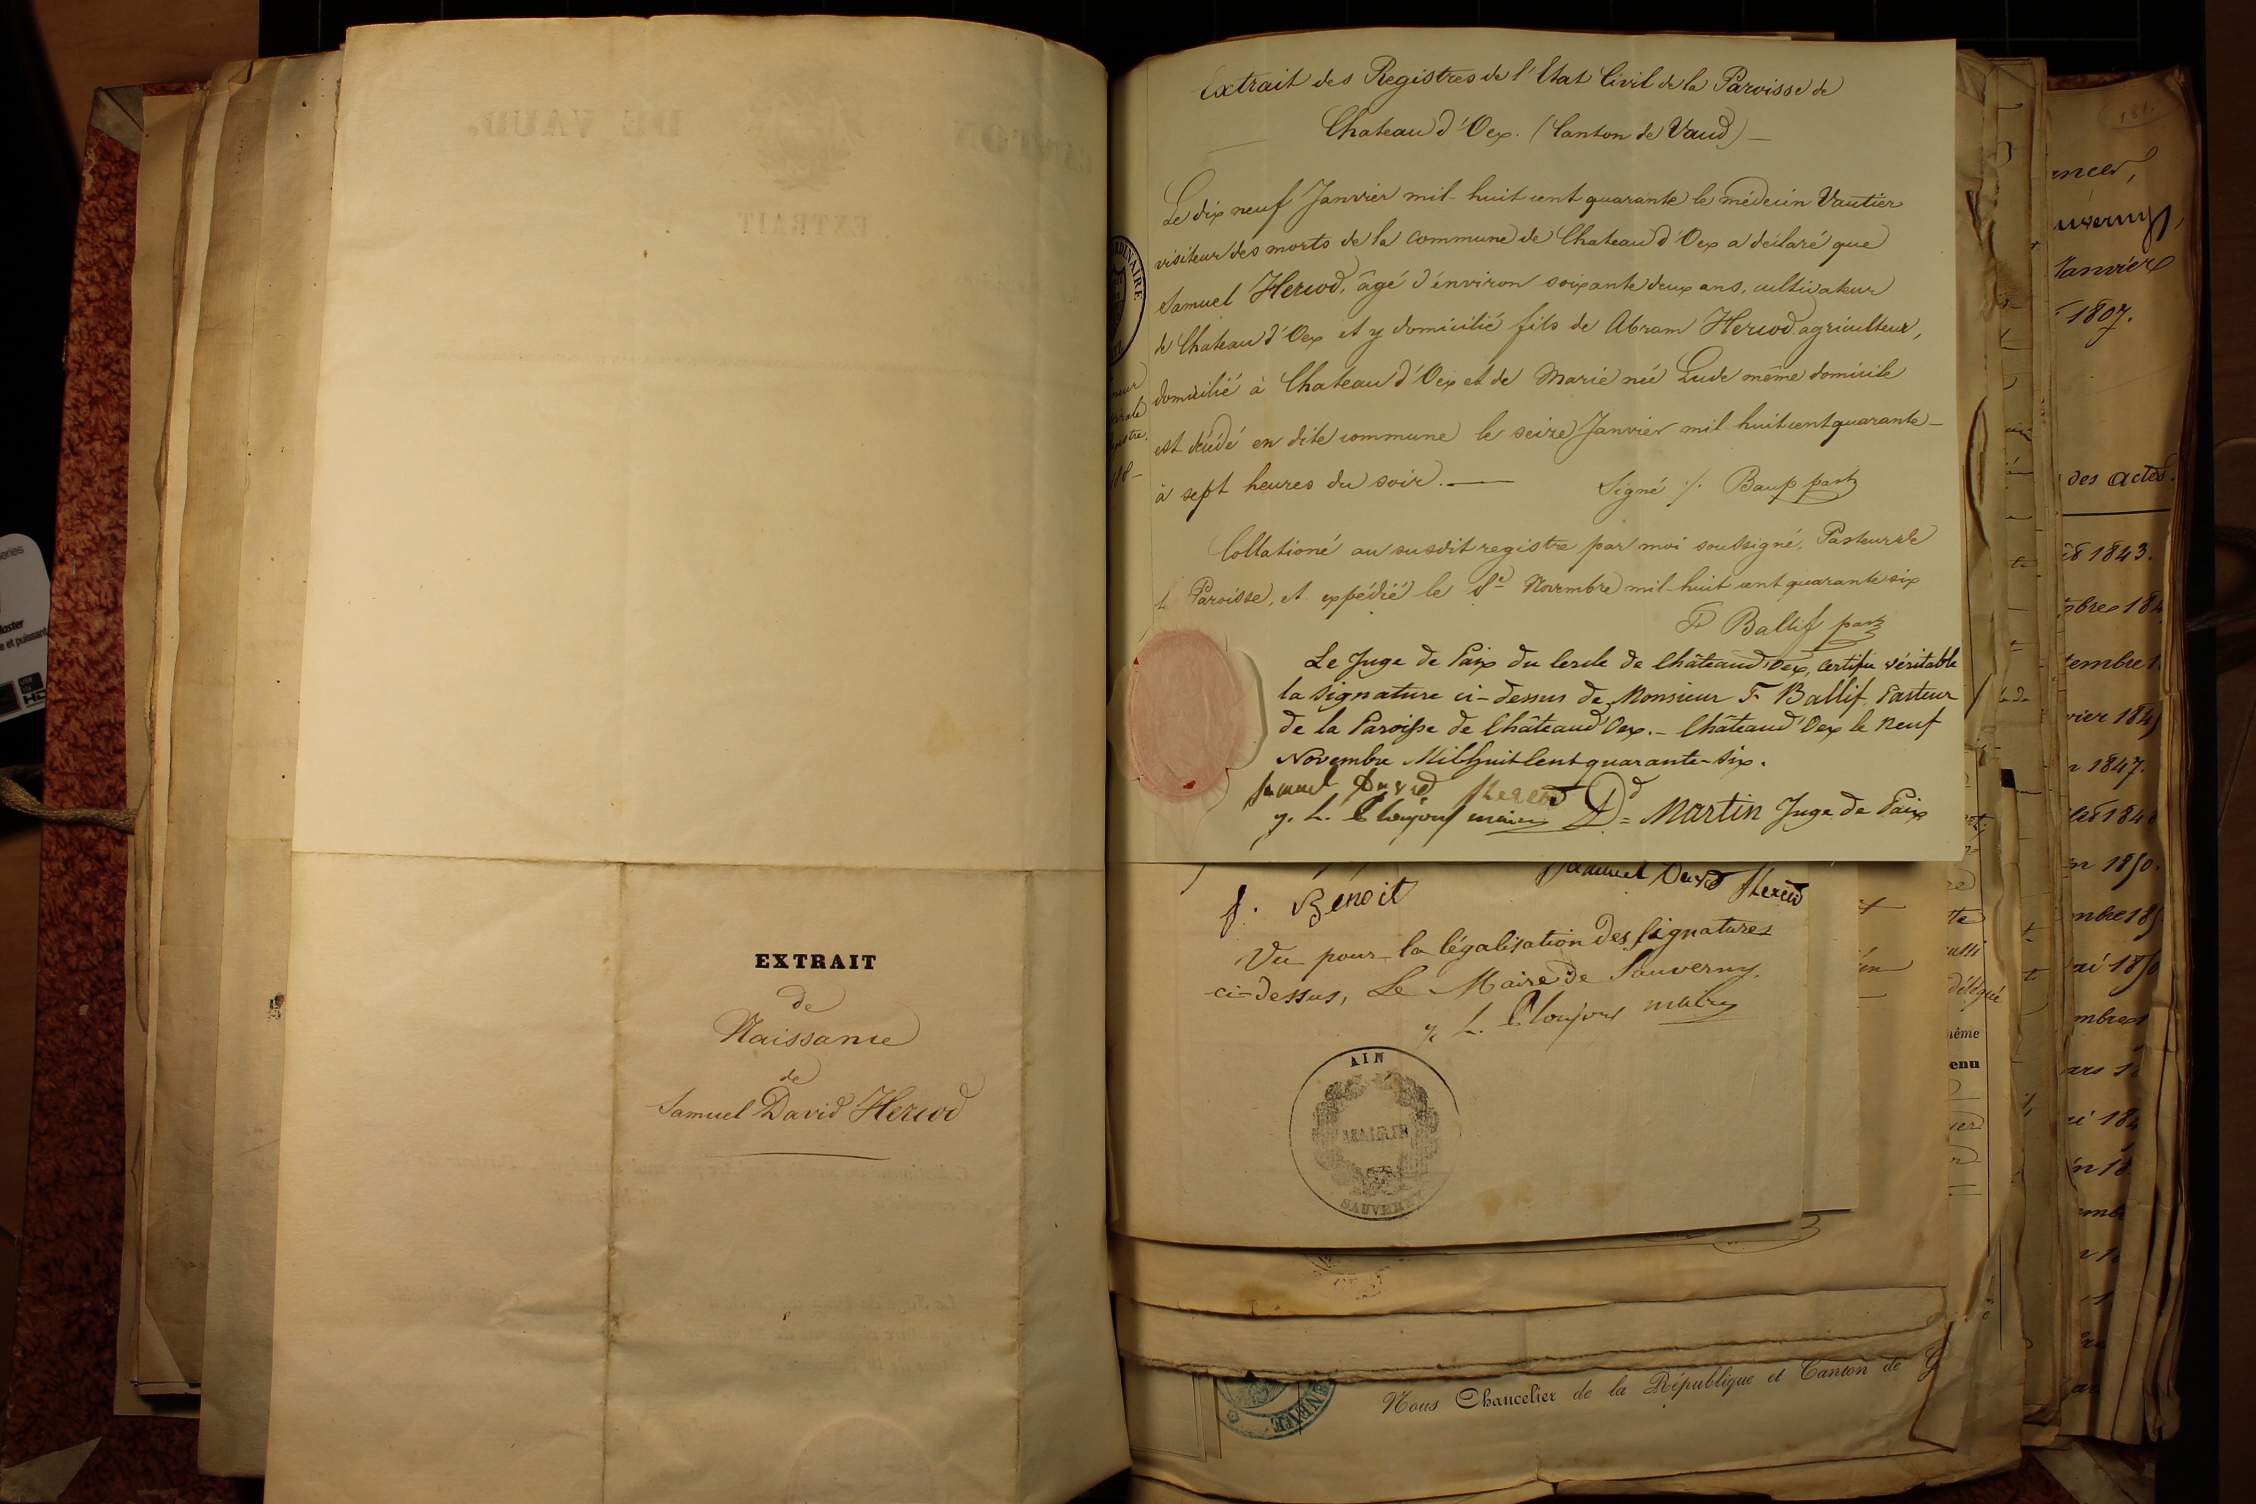 EXTRAIT
de
Naissance
de
Samuel David Hercod
Extrait des Registres de l'Etat Civil de la Paroisse de
Chateau d'Oex. (Canton de Vaud) —
Le dix neuf Janvier mil-huit cent quarante le médecin Vautier
visiteur des morts de la commune de Chateau d'Oex a déclaré que
Samuel Hercod, âgé d'environ soixante deux ans, cultivateur
de Chateau d'Oex et y domicilié fils de Abram Hercod agriculteur,
domicilié à Chateau d'Oex et de Marie née Lude même domicile
est décédé en dite commune le seize Janvier mil huit cent quarante —
à sept heures du soir. —
Signé /. Baup past
Collationé au susdit registre par moi soussigné, Pasteur de
la Paroisse, et expédié le 8e Novembre mil-huit cent quarante six
F Ballif past
Le Juge de Paix du Cercle de Château d'Oex, certifie véritable
la signature ci-dessus de Monsieur F Ballif Pasteur
de la Paroisse de Château d'Oex. — Château d'Oex le neuf
Novembre Mil huit Cent quarante-six.
Samuel David Hercod
Dd = Martin Juge de Paix
maire
Samuel David Hercod
f. Benoit
Vu pour la légalisation des signatures
ci-dessus, Le Maire de Sauverny.
maire
AIN
MAIRIE
Nous Chancelier de la République et Canton de G
181.
Janvier
1807.
des actes.
1843.
1847.
1850.